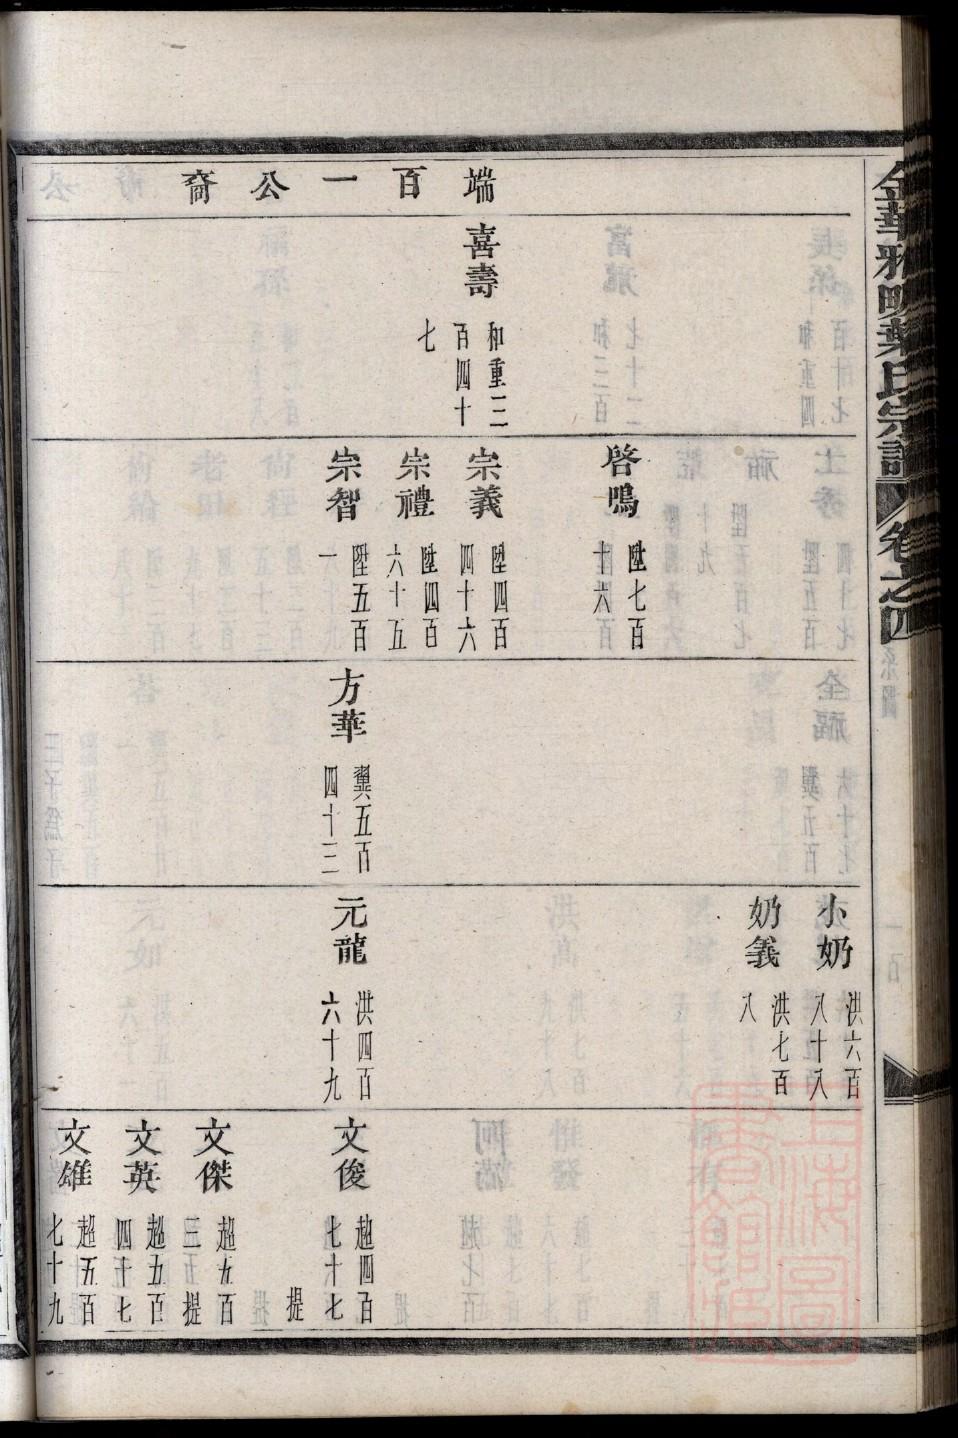 金華雅畈葉氏宗譜 卷之四
系圖
端百一公裔
喜壽
和重三
百四十
七
啓鳴
陞七百
十六
宗義
陞四百
四十六
宗禮
陞四百
六十五
宗智
陞五百
一
方華
翼五百
四十三
小奶
洪六百
八十八
奶義
洪七百
八
元龍
洪四百
六十九
文俊
超四百
七十七
提
文傑
超五百
三 提
文英
超五百
四十七
文雄
超五百
七十九
上海圖
書館藏